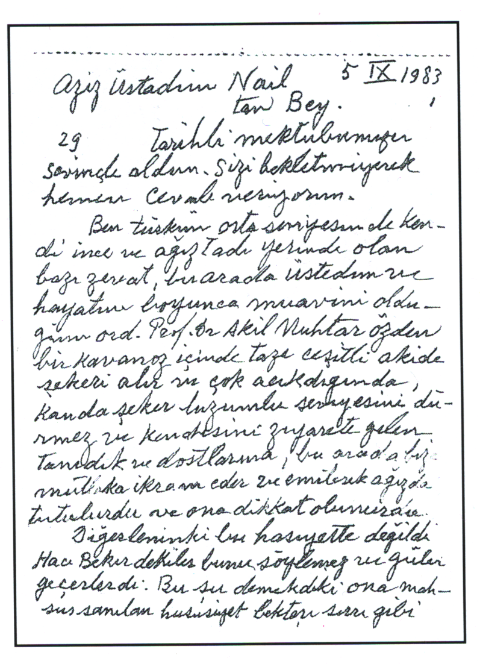 5 IX 1983
Aziz Üstadım Nail
tan Bey.
29 Tarihli mektubunuzu
sevinçle aldım. Sizi bekletmiyerek
hemen cevab veriyorum.
Ben orta seviyesinde ken-
di ince ve ağız tadı yerinde olan
bazı zevat, bu arada üstadım ve
hayatım boyunca muavini oldu-
ğum ord. Prof. Dr Akil Muhtar özden
bir kavanoz içinde taze çeşitli akide
şekeri alır ve çok acıkdığında,
kanda şeker luzumlu seviyesini dü-
rmez ve kendisini ziyarete gelen
tanıdık ve dostlarına, bu arada biz
mutlaka ikram eder ve emilerek ağızda
tutulurdu ve ona dikkat olunurdu.
Diğerlerininki bu hasiyette değildi
Hacı Bekir dekiler bunu söylemez ve güler
geçerlerdi. Bu şu demekdeki ona mah-
sus sanılan hususiyet bektaşi sırrı gibi